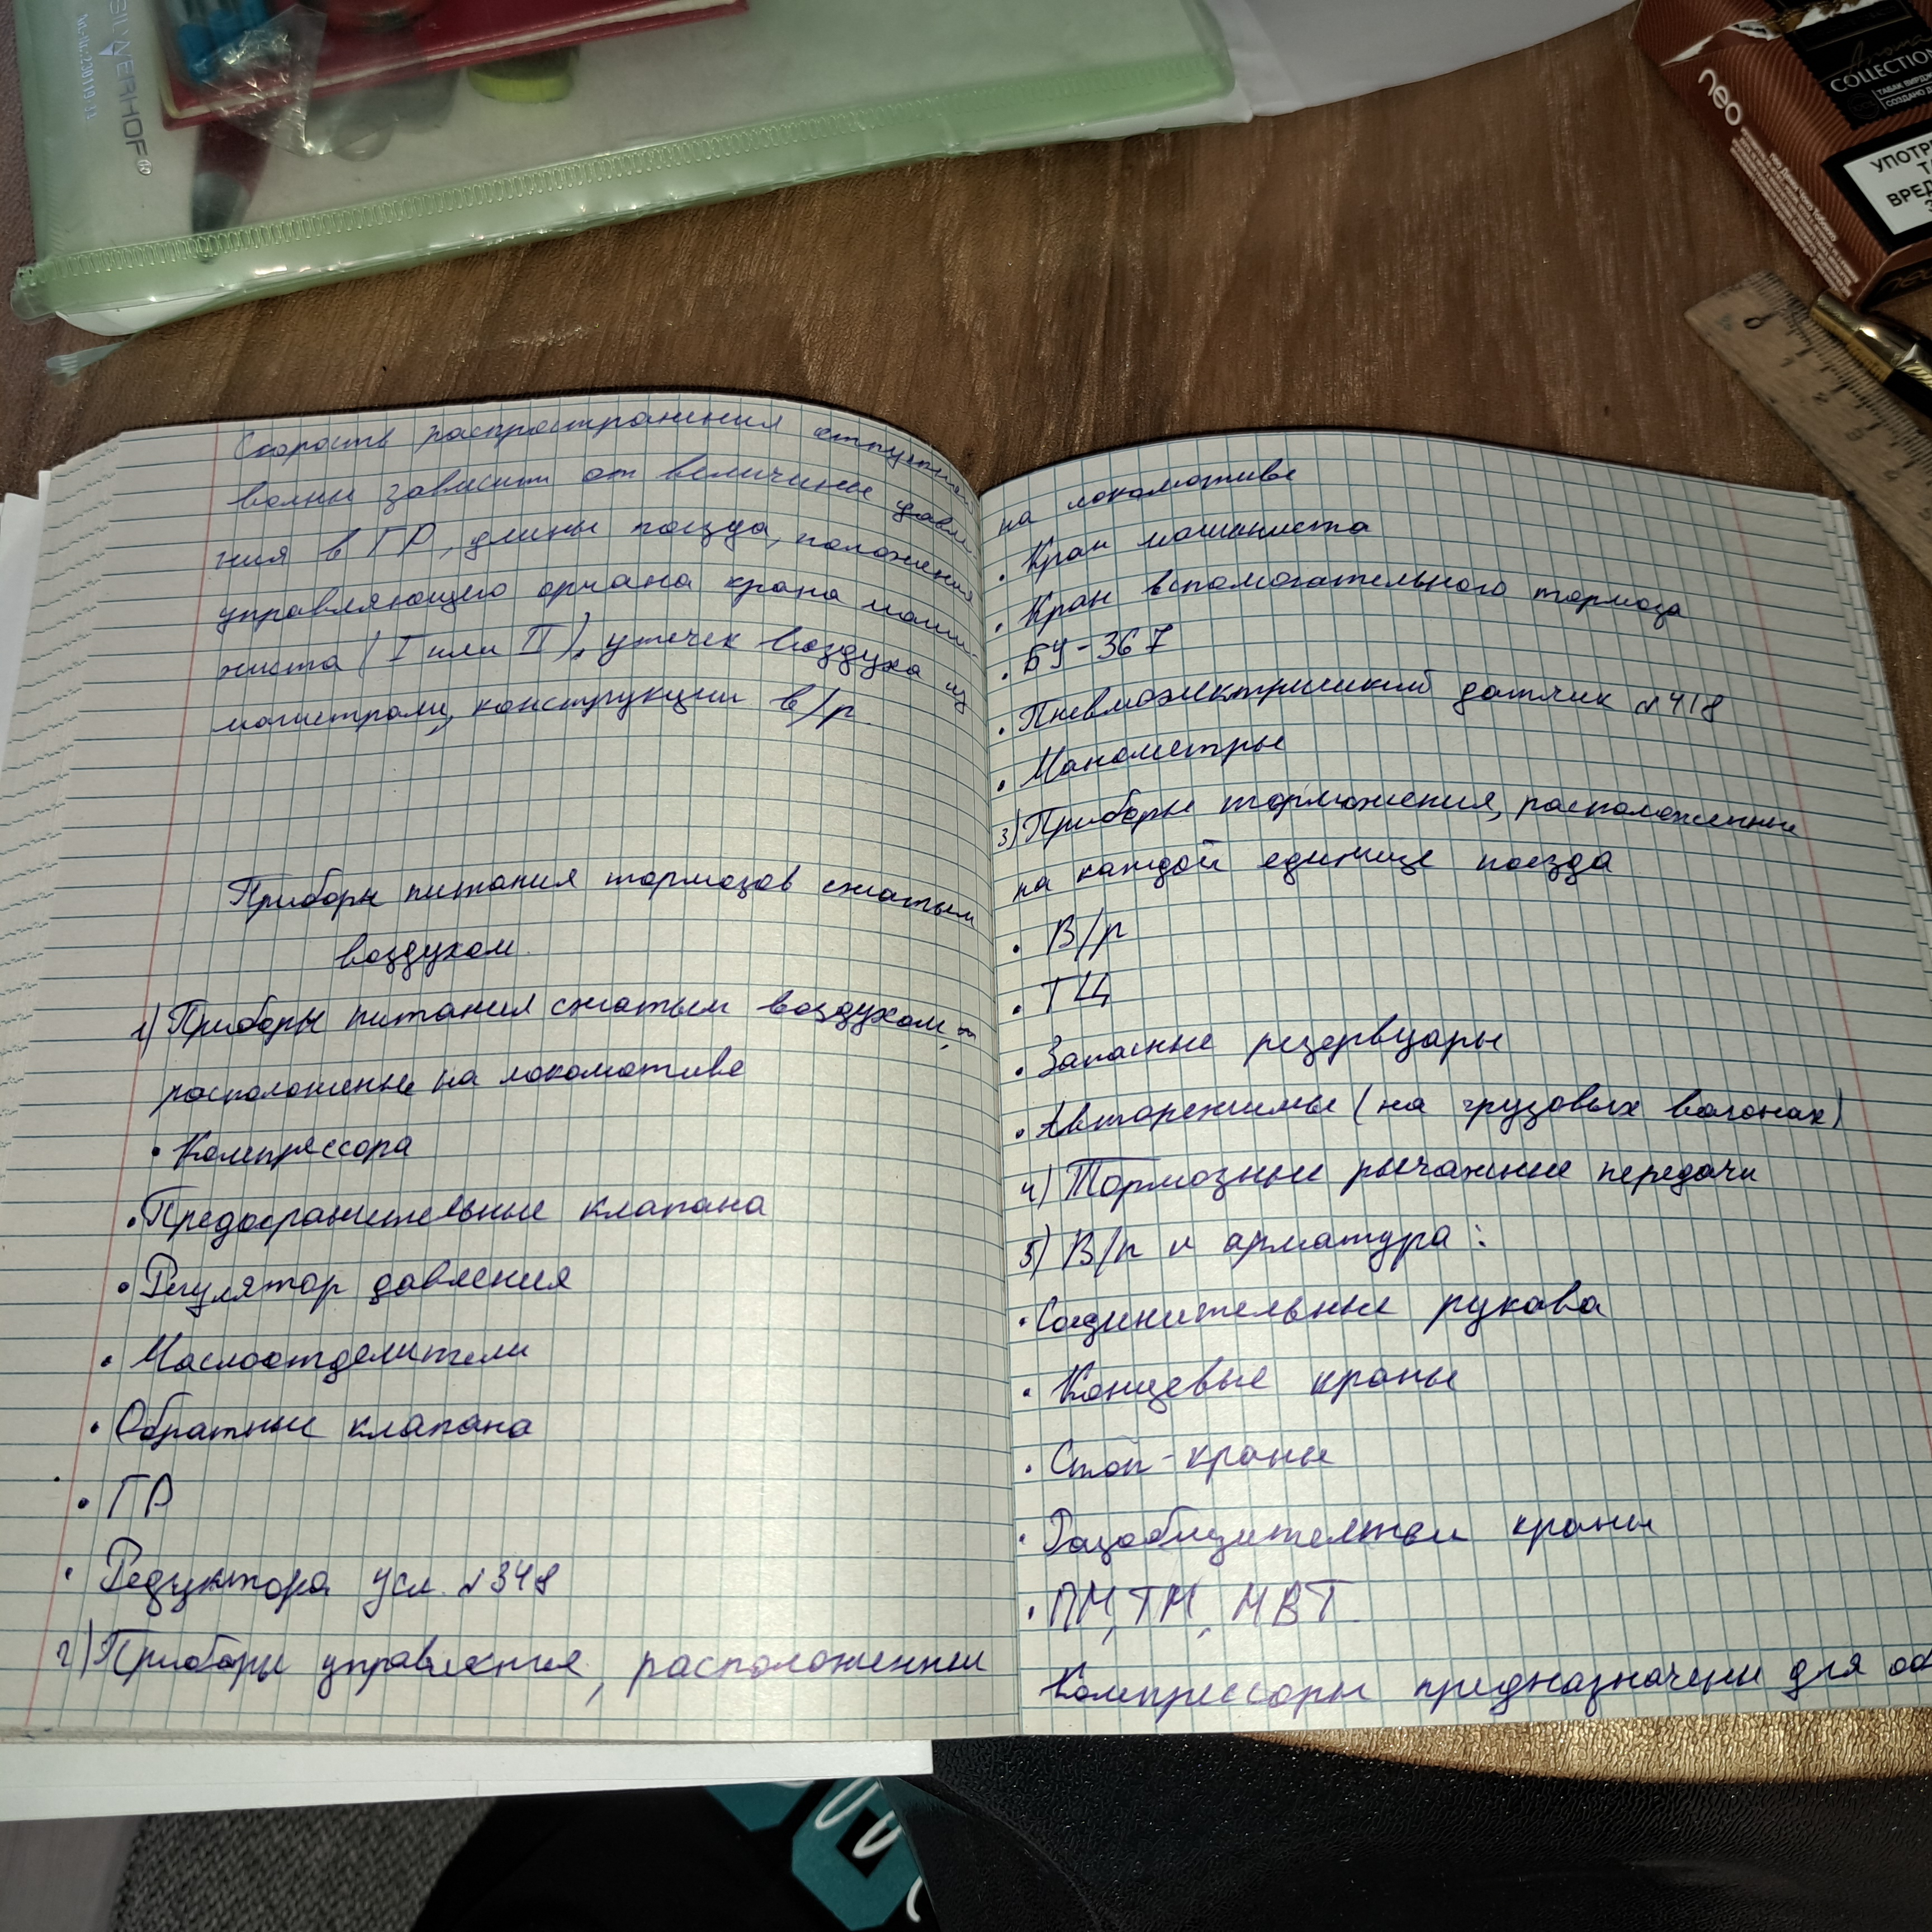 SILWERHOF®
neo
COLLECTION
0 1 2 3 4
Скорость распространения отпускной
волны зависит от величины давле-
ния в ГР, длины поезда, положения
управляющего органа крана маши-
ниста (I или II), утечек воздуха из
магистрали, конструкции в/р.
Приборы питания тормозов сжатым
воздухом.
1) Приборы питания сжатым воздухом,
расположеные на локомотиве
• Компрессора
• Предохранительные клапана
• Регулятор давления
• Маслоотделители
• Обратные клапана
• ГР
• Редуктора усл. №348
2) Приборы управления, расположенные
на локомотиве
• Кран машиниста
• Кран вспомогательного тормоза
• БУ-367
• Пневмоэлектрический датчик №418
• Манометры
3) Приборы торможения, расположенные
на каждой единице поезда
• В/р
• ТЦ
• Запасные резервуары
• Авторежимы (на грузовых вагонах)
4) Тормозные рычажные передачи
5) В/п и арматура:
• Соединительные рукава
• Концевые краны
• Стоп-краны
• Разобщительные краны
• ПМ, ТМ, МВТ.
Компрессоры предназначены для об